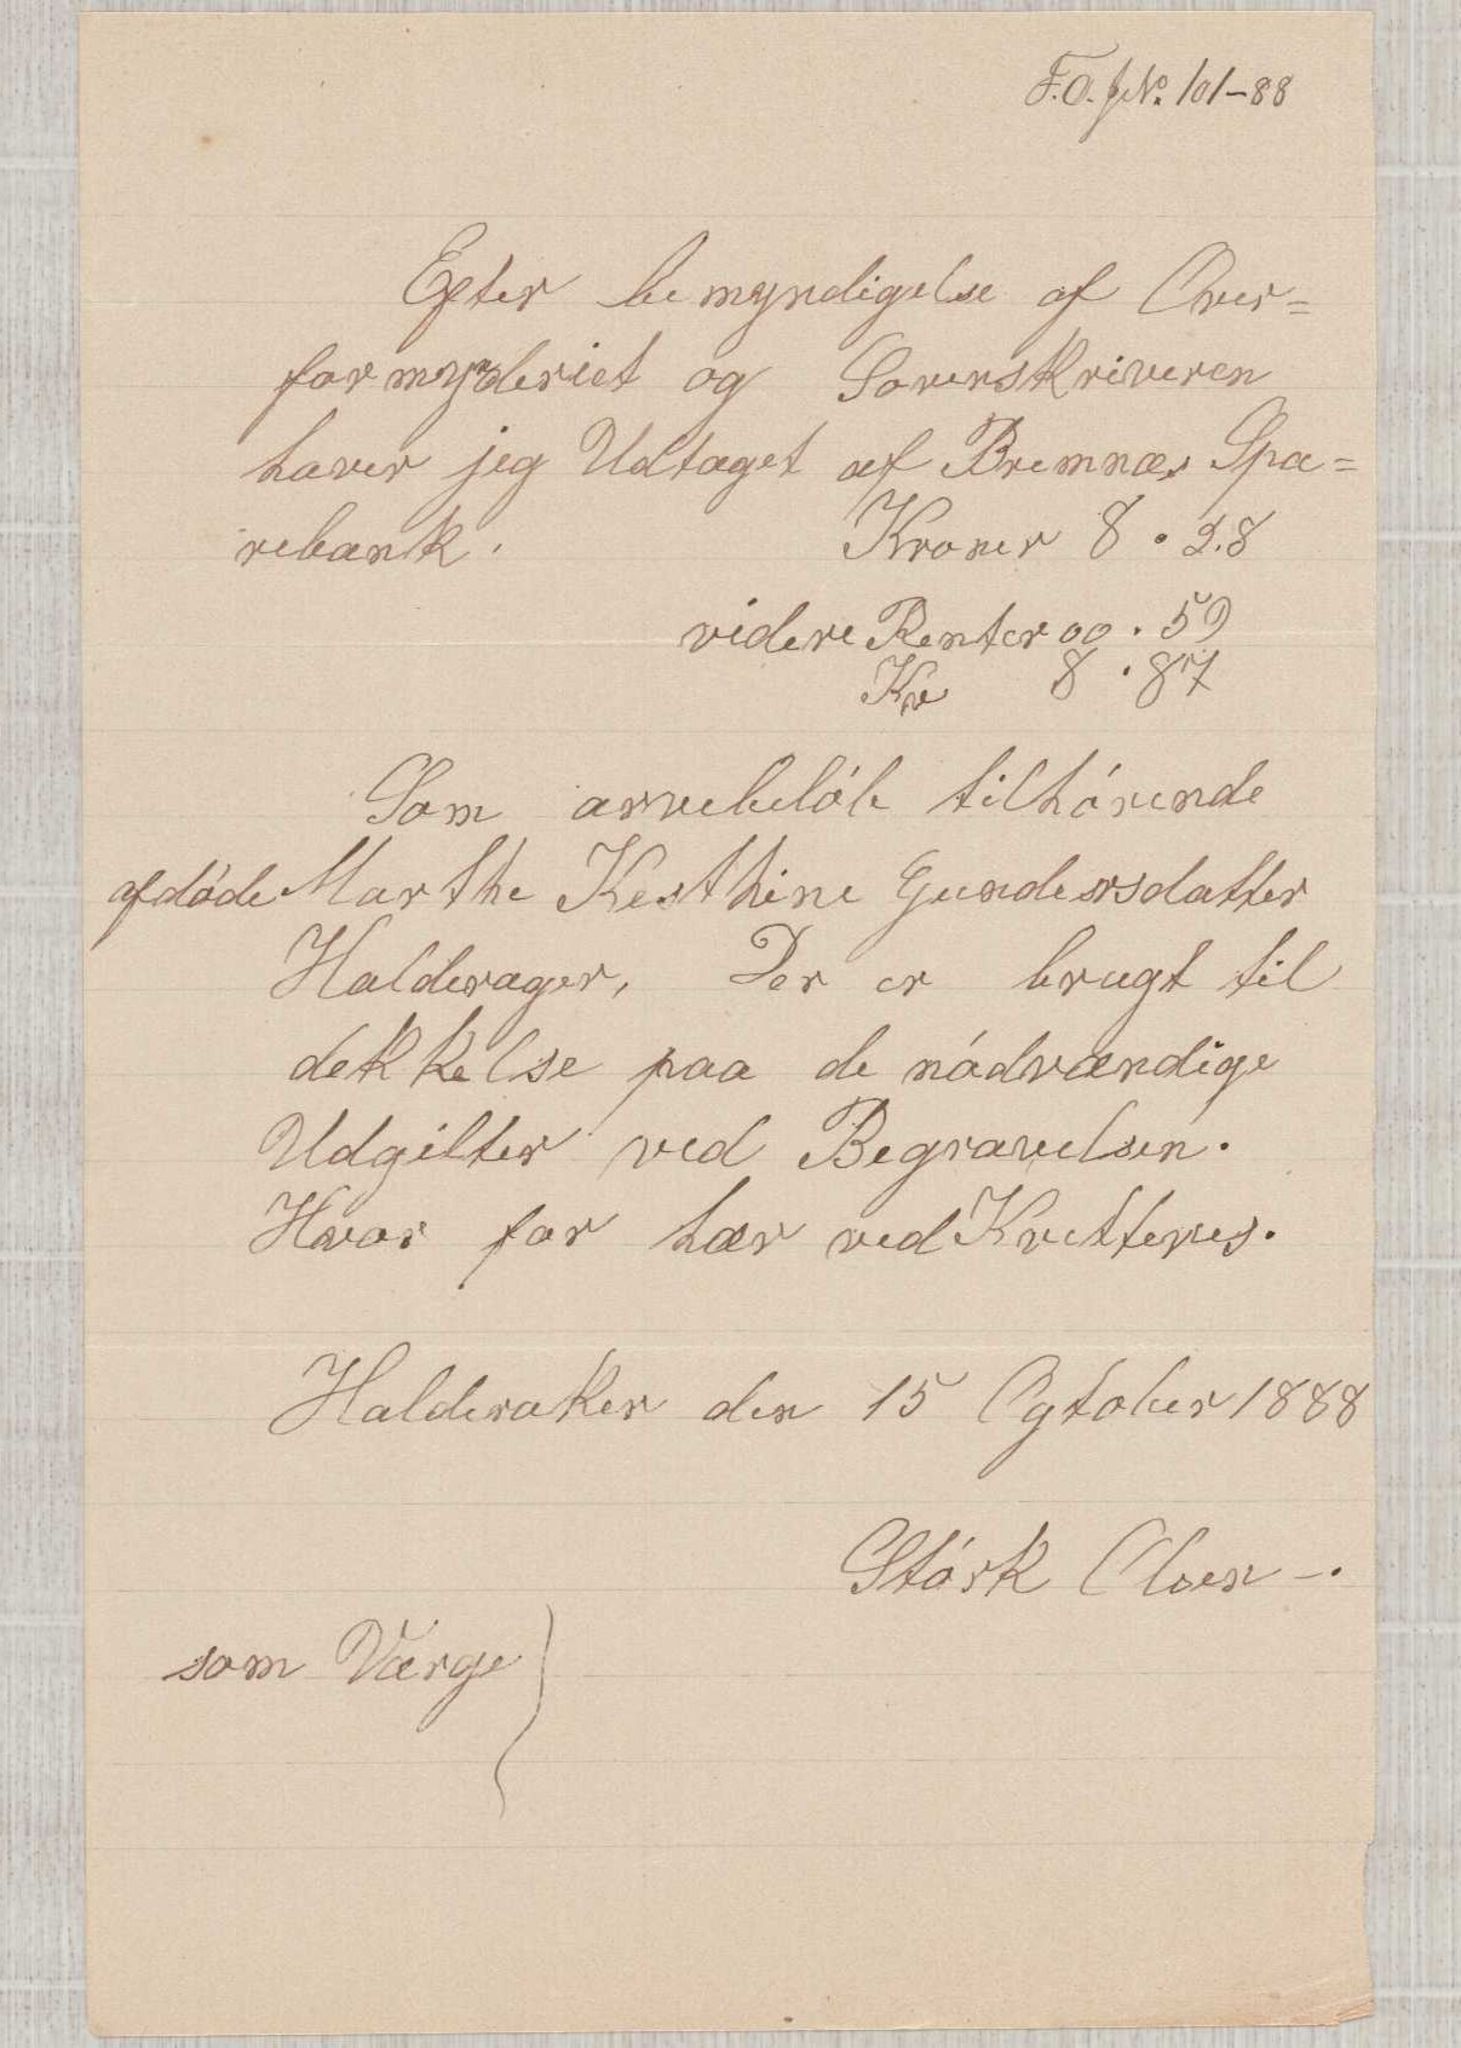 F.O. J№. 101-88
Efter be myndigelse af Over=
formynderiet og Sorenskriveren
haver jeg Udtaget af Bremnæs Spa=
rebank. Kroner 8 . 28
videre Renter 00 . 59
Kr 8 . 87
Som arvebelób tilhórende
afdóde Marthe Kesthine Gundersdatter
Halderager, Der er brugt til
dekkelse paa de nódvændige
Udgilter ved Begravelsen.
Hvor for hær ved Kvitteres.
Halderaker den 15 Ogtober 1888
Stórk Olsen -.
som Værge